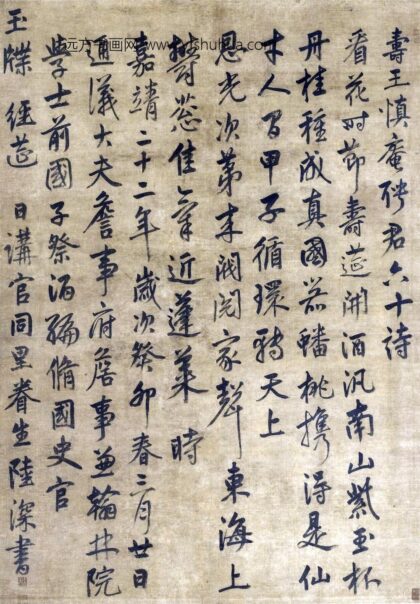 壽王慎庵聘君六十詩
看花時節壽筵開酒汎南山紫玉杯
丹桂種成真國器蟠桃携得是仙
才人間甲子循環轉天上
恩光次第來閥閱家聲東海上
鬱葱佳氣近蓬萊 時
嘉靖二十二年歲次癸卯春三月廿日
通議大夫詹事府詹事兼翰林院
學士前國子祭酒編脩國史官
玉牒經筵 日講官同里眷生陸深書